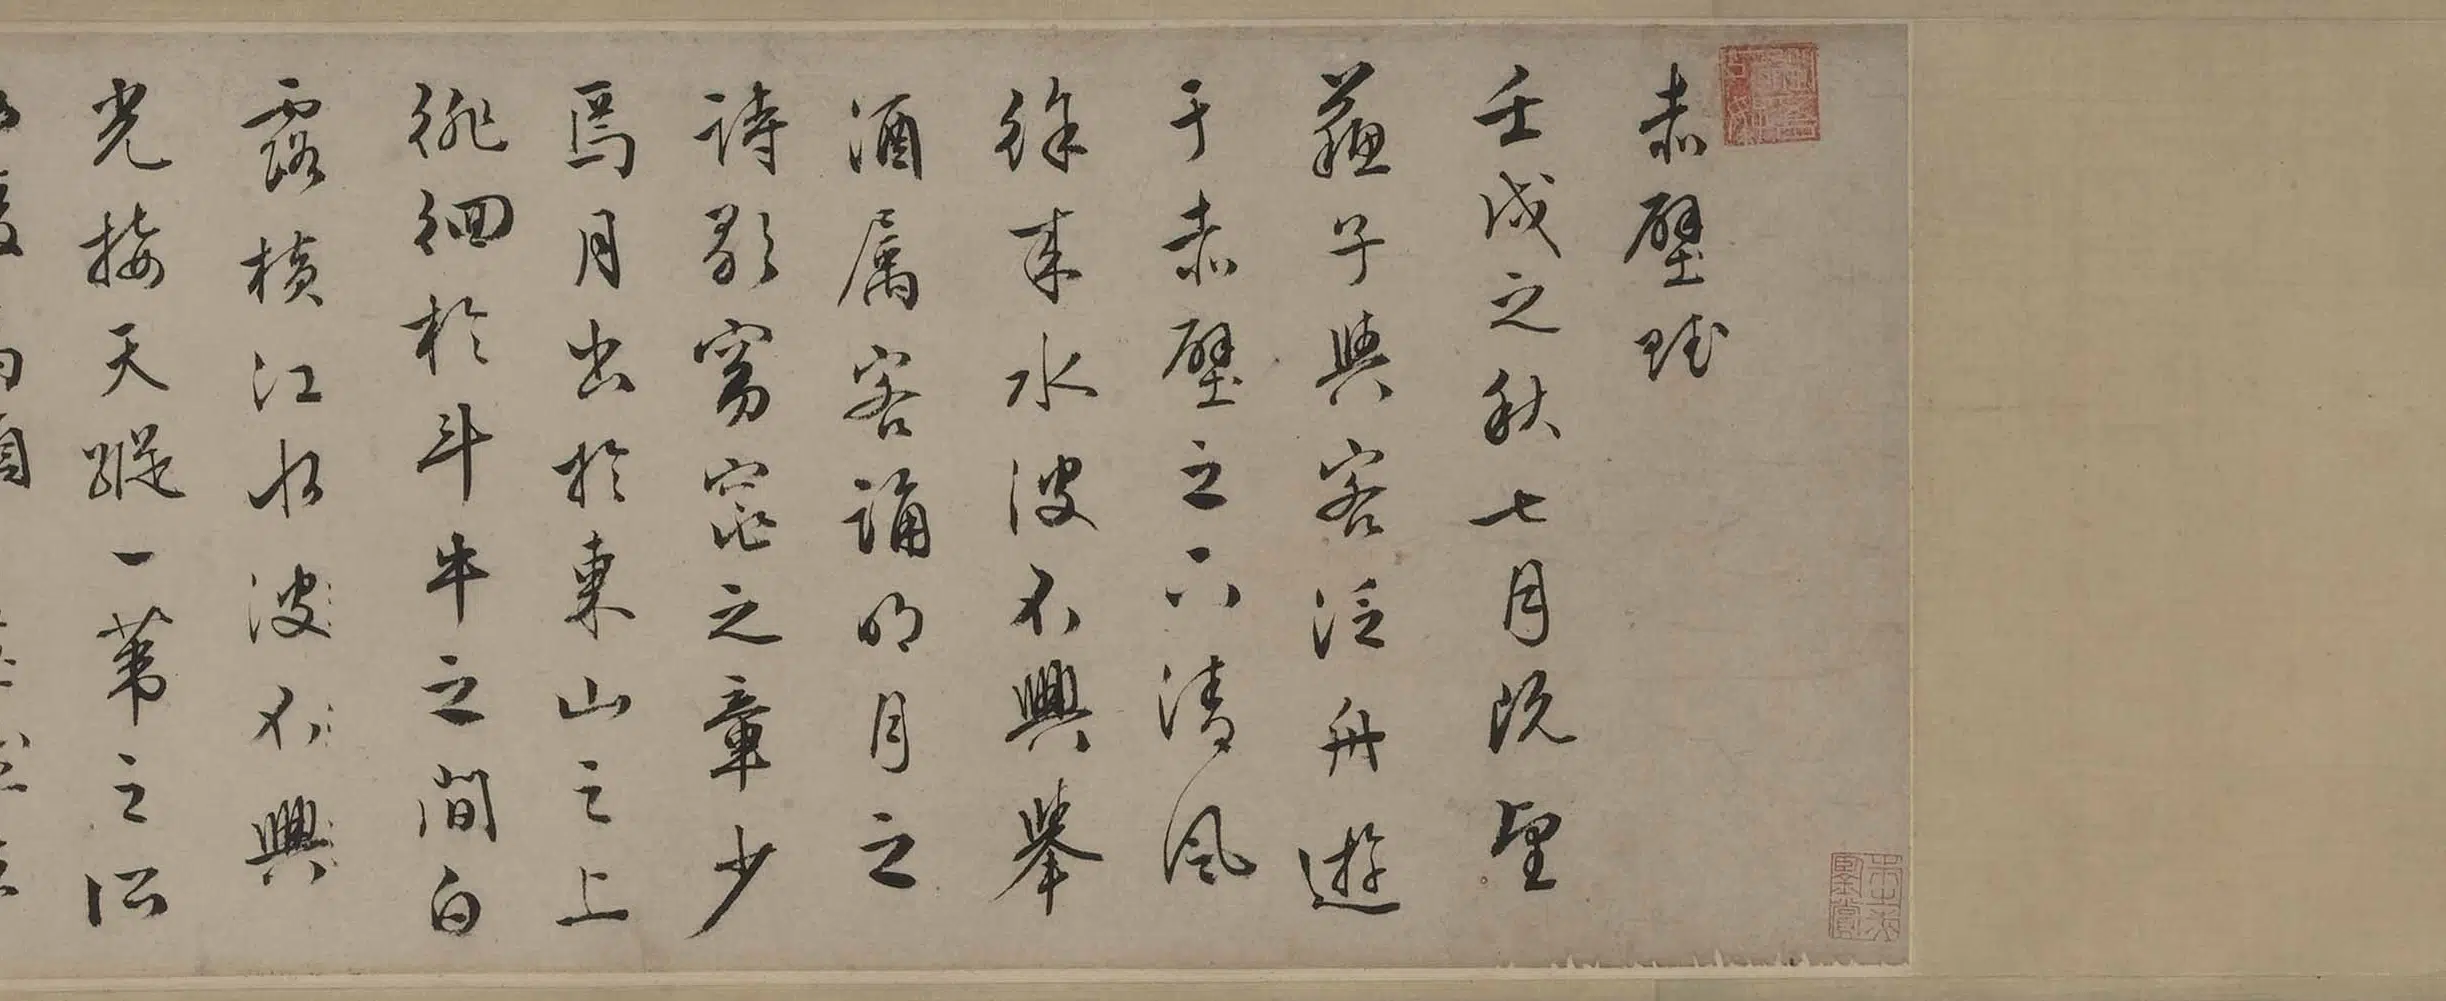 赤壁賦
壬戌之秋七月既望
蘇子與客泛舟遊
于赤壁之下清風
徐來水波不興舉
酒属客誦明月之
詩歌窈窕之章少
焉月出於東山之上
徘徊於斗牛之間白
露橫江水波不興
光接天縱一葦之所